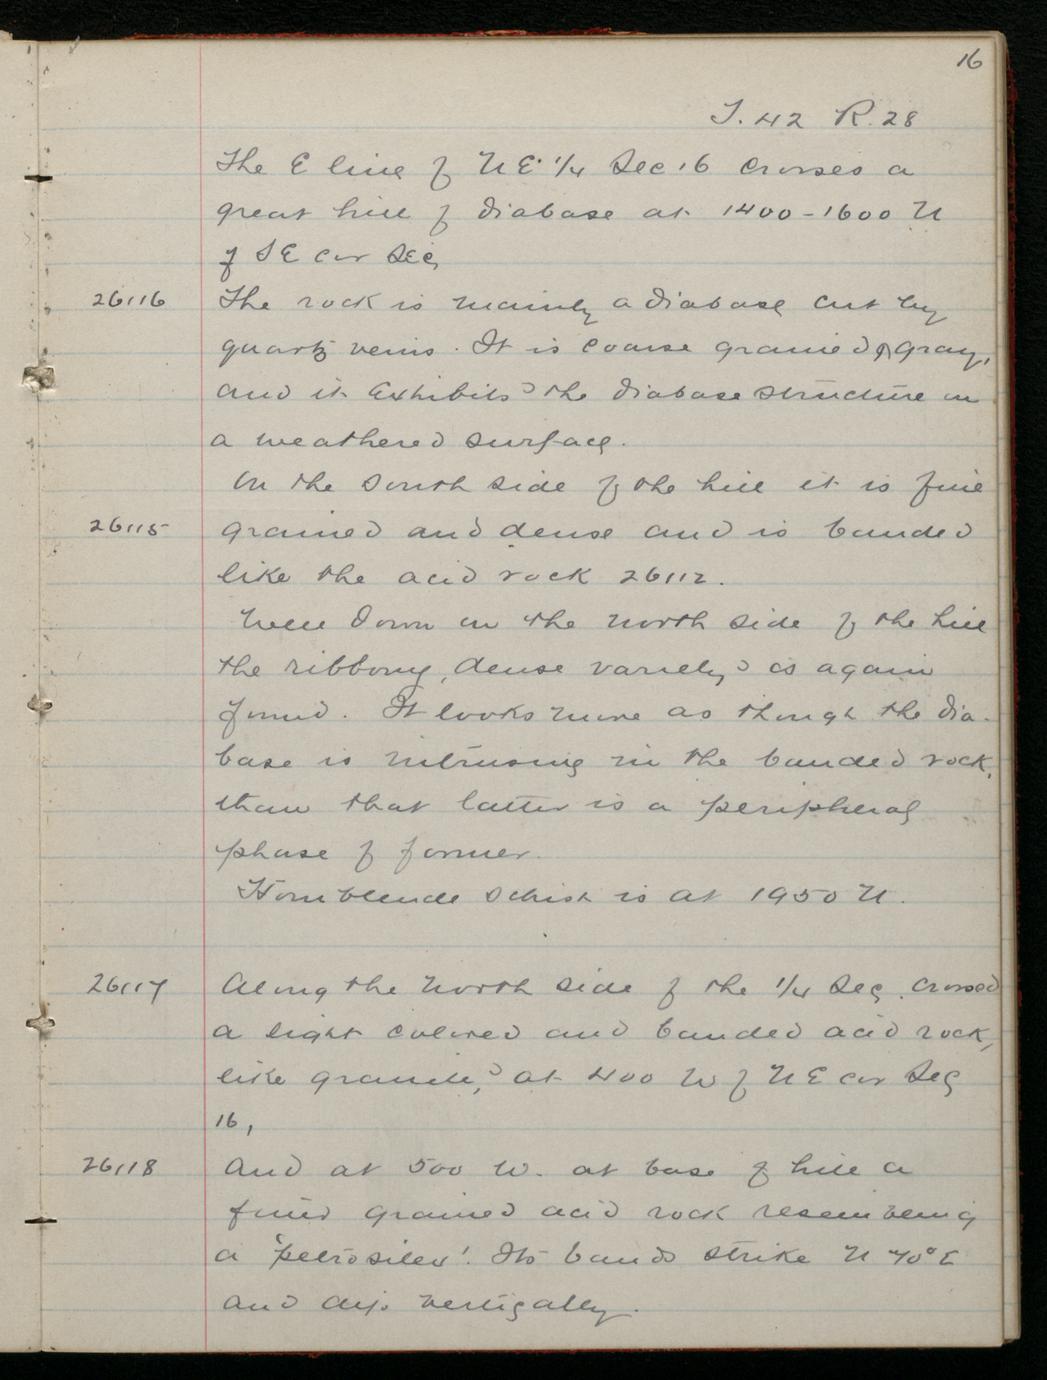 16
T. 42 R. 28
The E line of N E 1/4 Sec 16 crosses a
great hill of diabase at 1400-1600 N
of S E cor Sec,
26116 The rock is mainly a diabase cut by
quartz veins. It is coarse grained & gray,
and it exhibits the diabase structure on
a weathered surface.
On the south side of the hill it is fine
26115 grained and dense and is banded
like the acid rock 26112.
Well down on the north side of the hill
the ribbony, dense variety is again
found. It looks more as though the dia-
base is intrusive in the banded rock,
than that latter is a peripheral
phase of former.
Hornblende schist is at 1950 N.
26117 Along the north side of the 1/4 Sec, crossed
a light colored and banded acid rock,
like granite, at 400 W of N E cor Sec
16,
26118 And at 500 W. at base of hill a
fine grained acid rock resembling
a 'petrosilex'. Its bands strike N 70° E
and dip vertically.